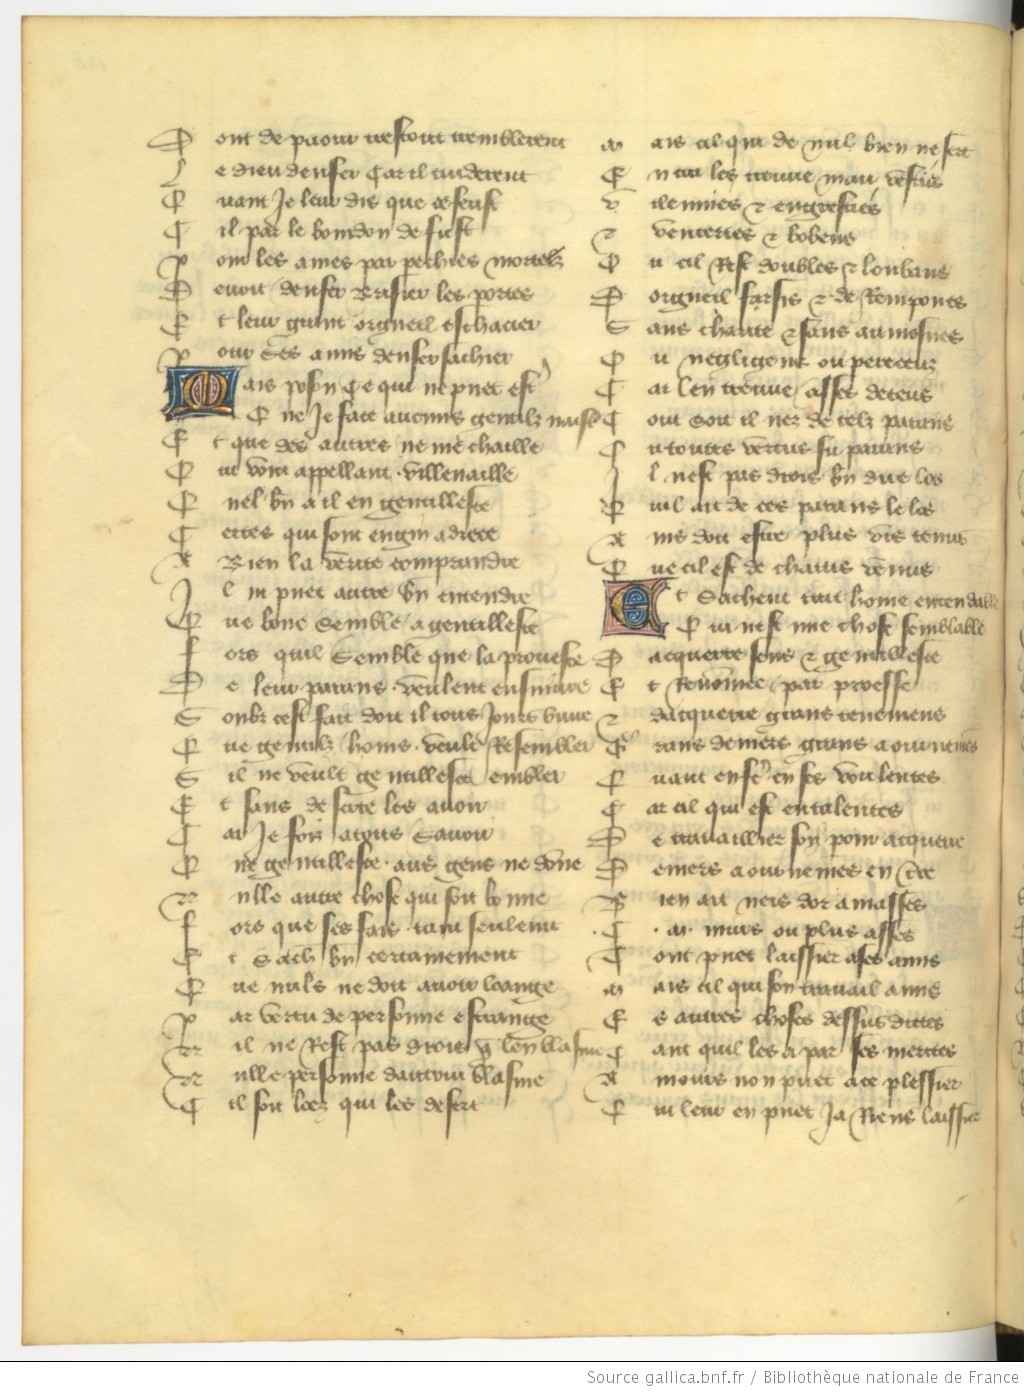 Dont de paour trestout tremblerent
Le dieu denfer Car il cuiderent
Quant Je leur dis que ce feust
Cil par le bourdon de fust
Pour les ames par pechies mortelz
Devoit denfer brisier les portes
Et leur grant orgueil eschacier
Pour Ses amis denfer sachier
Mais poson Ce qui ne puet estre
Que Je face aucuns gentilz naistre
Et que des autres ne me chaille
Qui vont appellant villenaille
Quel bn a il en gentillesce
Certes qui son engin adrece
A Bien la verite comprandre
Il ni puet autre bn entendre
Que bone Semble a gentillesce
Fors quil Semble que la prouesce
De leur parans veulent ensuivre
Soubz cest fait doit il tous Jours vivre
Que gentilz homs veult Resembler
Sil ne veult gentillesce embler
Et sans deserte los avoir
Car Je fois atous Savoir
Que gentillesce aus gens ne done
Nulle autre chose qui soit bonne
Fors que ses fais tant seulemt
Et Sach bn certainement
Que nuls ne doit avoir loange
Par vertu de personne estrange
Si ne Rest pas drois q len blasme
Nulle personne dautrui blasme
Cil soit loez qui les desert
Mais cil qui de nul bien ne sert
En cui les treuve mauvestiez
Vilenies & engrestiez
& venteries & bobens
Ou cil Rest doubles & loubans
Dorgueil farsis & de Rempones
Sans charite & sans aumosnes
Ou negligent ou pereceuz
Car len treuve asses deceus
Tout Soit il nez de telz parans
Ou toutes vertus fu parans
Il nest pas drois bn dire los
Quil ait de ces parans le los
Ains doit estre plus vis tenus
Que cil est de chaitis venus
Et Sachent tuit home entendable
Quil nest mie chose semblable
Dacquerre sens & gentillesce
Et Renomee par proesse
& dacquerre grans tenemens
Grans deniers grans aournemens
Quant enfer en fes voulentes
Car cil qui est entalentes
De travaillier soy pour acquerre
Deniers aournemes en terre
Bien ait neis dor amasses
.C. mars ou plus asses
Tout puet laissier ases amis
Mais cil qui son travail amis
Es autres choses dessusdittes
Tant quil les a par ses merites
Amours non puet ace plessier
Qui leur en puet Ja Riens laissier
Source gallica.bnf.fr / Bibliothèque nationale de France